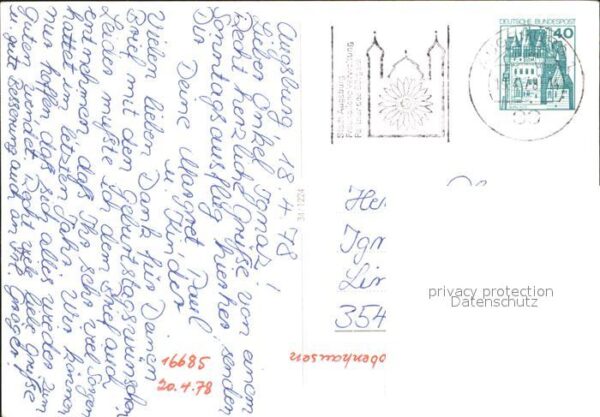 Augsburg, 18.4.78
Lieber Onkel Ignaz!
Recht herzliche Grüße von einem
Sonntagsausflug hierher senden
Dir Deine Margret Paul
u. Kinder
Vielen lieben Dank für Deinen
Brief mit den Geburtstagswünschen
Leider mußte ich dem Brief auch
entnehmen, daß Ihr schon viel Sorgen
hattet im letzten Jahr. Wir können
nur hoffen daß sich alles wieder zum
Guten wendet. Recht viele liebe Grüße
u. gute Besserung auch an Frl.
16685
20.4.78
obenhausen
34/1224
DEUTSCHE BUNDESPOST
40
He
Ign
Lin
354
privacy protection
Datenschutz